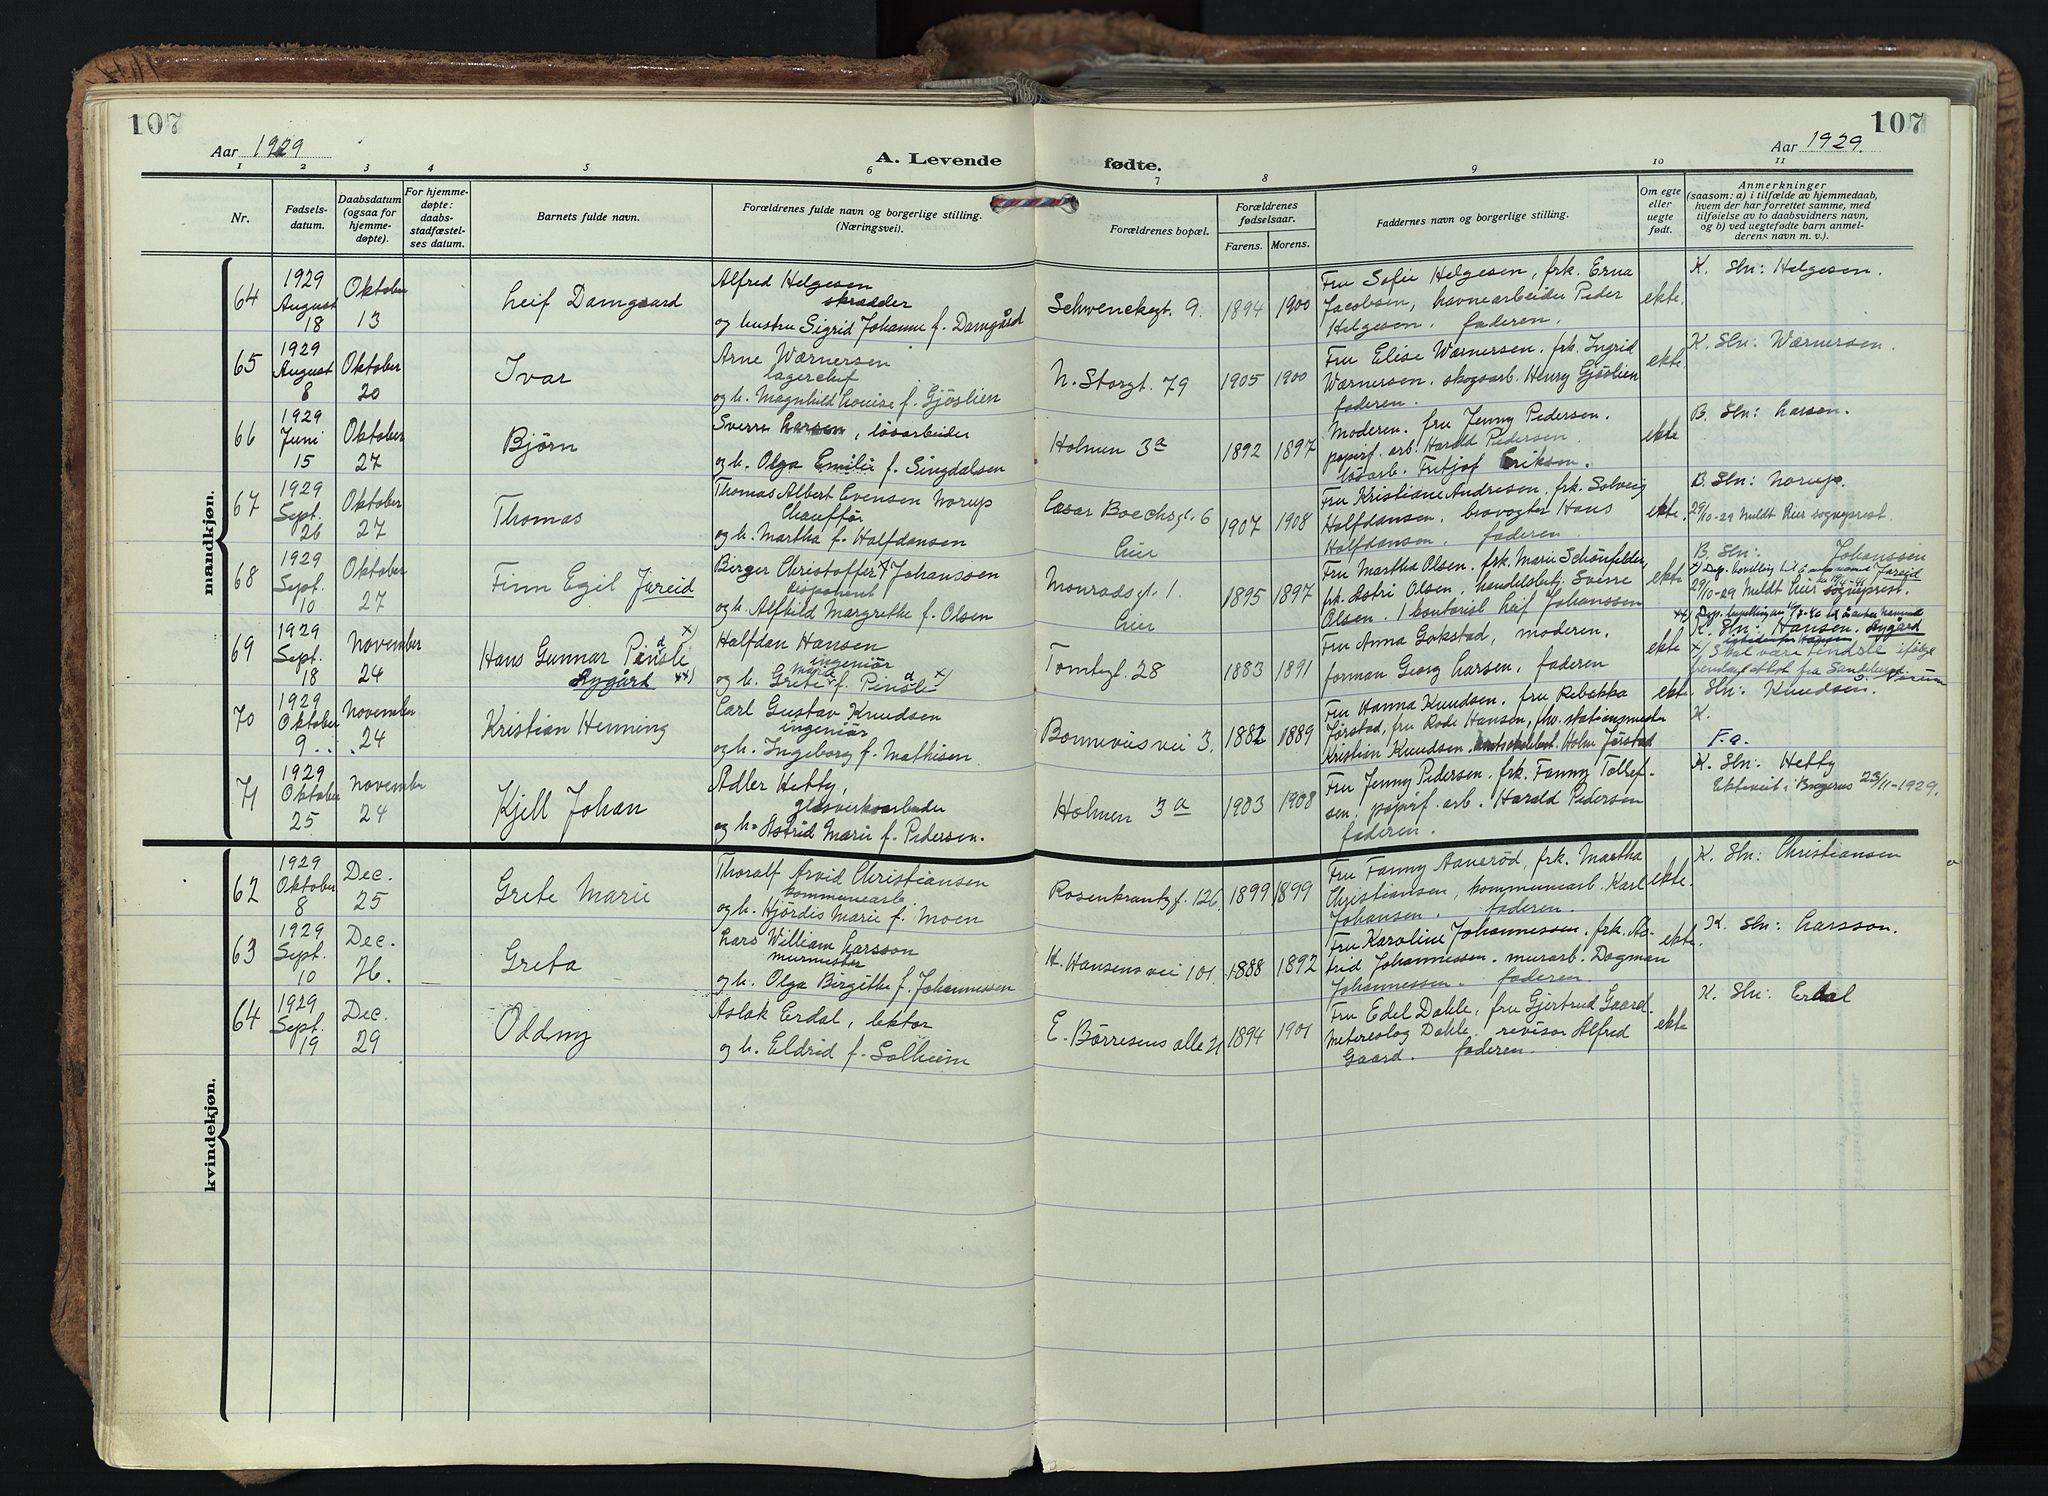 107
107
Aar 1929
A. Levende fødte.
Aar 1929.
1 2 3 4 5 6 7 8 9 10 11
Nr.
Fødsels-
datum.
Daabsdatum
(ogsaa for
hjemme-
døpte).
For hjemme-
døpte:
daabs-
stadfæstel-
ses datum.
Barnets fulde navn.
Forældrenes fulde navn og borgerlige stilling.
(Næringsvei).
Forældrenes bopæl.
Forældrenes
fødselsaar.
Farens. Morens.
Faddernes navn og borgerlige stilling.
Om egte
eller
uegte
født.
Anmerkninger
(saasom: a) i tilfælde av hjemmedaab,
hvem der har forrettet samme, med
tilføielse av to daabsvidners navn,
og b) ved uegtefødte barn anmel-
derens navn m. v.).
mandkjøn.
64
1929
August
18
Oktober
13
Leif Damgaard
Alfred Helgesen
skrædder
og hustru Sigrid Johanne f. Damgård
Schwenckegt. 9.
1894 1900
Fru Sofie Helgesen, frk. Erna
Jacobsen, havnearbeider Peder
Helgesen. faderen.
ekte.
K. Sln: Helgesen.
65
1929
August
8
Oktober
20
Ivar
Arne Wærnersen
lagerchef
og h. Magnhild Louise f. Gjöslien
N. Storgt. 79
1905 1900
Fru Elise Wærnersen. frk. Ingrid
Wærnersen. skogsarb. Henry Gjöslien
faderen.
ekte.
K. Sln: Wærnersen.
66
1929
Juni
15
Oktober
27
Bjørn
Sverre Larsen, løsarbeider
og h. Olga Emilie f. Singdalsen
Holmen 3a
1892 1897
Moderen. fru Jenny Pedersen.
papirf. arb. Harald Pedersen
løsarb. Fritjof Eriksen.
ekte
B. Sln: Larsen.
67
1929
Sept.
26
Oktober
27
Thomas
Thomas Albert Evensen Norup
Chauffør
og h. Martha f. Halfdansen
Cæsar Boechsgt. 6
Lier
1907 1908
Fru Kristiane Andresen. frk. Solveig
Halfdansen, brovogter Hans
Halfdansen. faderen.
ekte.
B. Sln: Norup.
29/10-29 Meldt Lier sogneprest.
68
1929
Sept.
10
Oktober
27
Finn Egil Jareid
Birger Christoffer x) Johanssen
disponent
og h. Alfhild Margrethe f. Olsen
Monradsgt. 1.
Lier
1895 1897
Fru Martha Olsen. frk. Marie Schönfelder,
frk. Astri Olsen, handelsbetj. Sverre
Olsen. kontorist Leif Johanssen
ekte
B. Sln: Johanssen
29/10-29 Meldt Lier sogneprest.
69
1929
Sept.
18
November
24
Hans Gunnar Pinsle x)
Rygård xx)
Halfdan Hansen
ingeniør
og h. Grete Marie f. Pinsle x)
Tomtegt. 28
1883 1891
Fru Anna Gokstad, moderen.
forman Georg Larsen, faderen
ekte
K. Sln: Hansen. Rygård
istedenfor Hansen
x) Skal være Pindsle ifølge
70
1929
Oktober
9
November
24
Kristian Henning
Carl Gustav Knudsen
ingeniør
og h. Ingeborg f. Mathisen
Bonnevies vei 3.
1882 1889
Fru Hanna Knudsen. fru Rebekka
Jørstad, fru Rode Hansen, fhv. stationsmester
Kristian Knudsen. Holm Jørstad
ekte.
Sln: Knudsen.
K.
F.a.
71
1929
Oktober
25
November
24
Kjell Johan
Adler Hetty,
glasverksarbeider
og h. Astrid Marie f. Pedersen.
Holmen 3a
1903 1908
Fru Jenny Pedersen. frk. Fanny Tollef-
sen. papirf. arb. Harald Pedersen
faderen.
K. Sln: Hetty
Ekteviet i Bragernes 23/11-1929.
kvindekjøn.
62
1929
Oktober
8
Dec.
25
Grete Marie
Thoralf Arvid Christiansen
kommunearb.
og h. Hjördis Marie f. Moen
Rosenkrantzgt. 126
1899 1899
Fru Fanny Aanerød, frk. Martha
Christiansen, kommunearb. Karl
Johansen. faderen.
ekte.
K. Sln: Christiansen
63
1929
Sept.
10
Dec.
26.
Greta
Lars William Larsson
murmester
og h. Olga Birgitte f. Johannessen
H. Hansens vei 101.
1888 1892
Fru Karoline Johannessen. frk. As-
trid Johannessen. murarb. Dagman
Johannessen. faderen.
ekte.
K. Sln: Larsson.
64
1929
Sept.
19
Dec.
29
Oddny
Aslak Erdal, lektor
og h. Eldrid f. Solheim
E. Börresens alle 21
1894 1901
Fru Edel Dahle, fru Gjertrud Gaard.
metereolog Dahle. revisor Alfred
Gaard. faderen.
ekte
K. Sln: Erdal